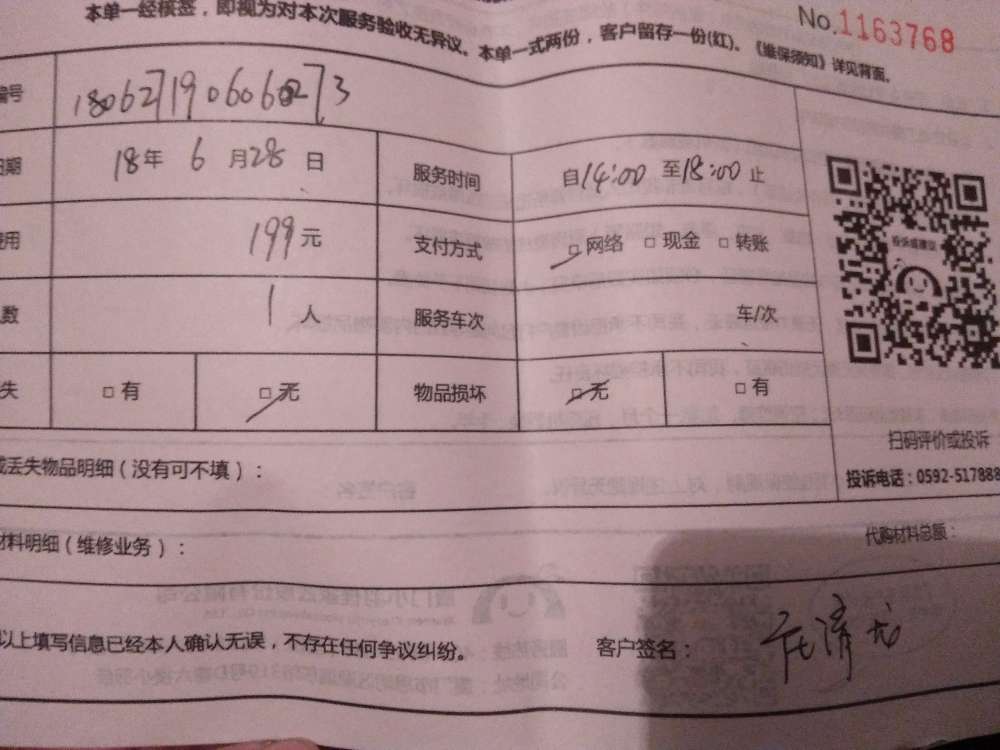 本单一经核签，即视为对本次服务验收无异议。本单一式两份，客户留存一份(红)。《维保须知》详见背面。
No.1163768
编号
日期 18年 6月28日 服务时间 自14:00 至18:00止
费用 199元 支付方式 □网络 □现金 □转账
投诉或建议
数 1人 服务车次 车/次
失 □有 □无 物品损坏 □无 □有
扫码评价或投诉
投诉电话：0592-517888
或丢失物品明细（没有可不填）：
材料明细（维修业务）：
代购材料总额：
以上填写信息已经本人确认无误，不存在任何争议纠纷。
客户签名：